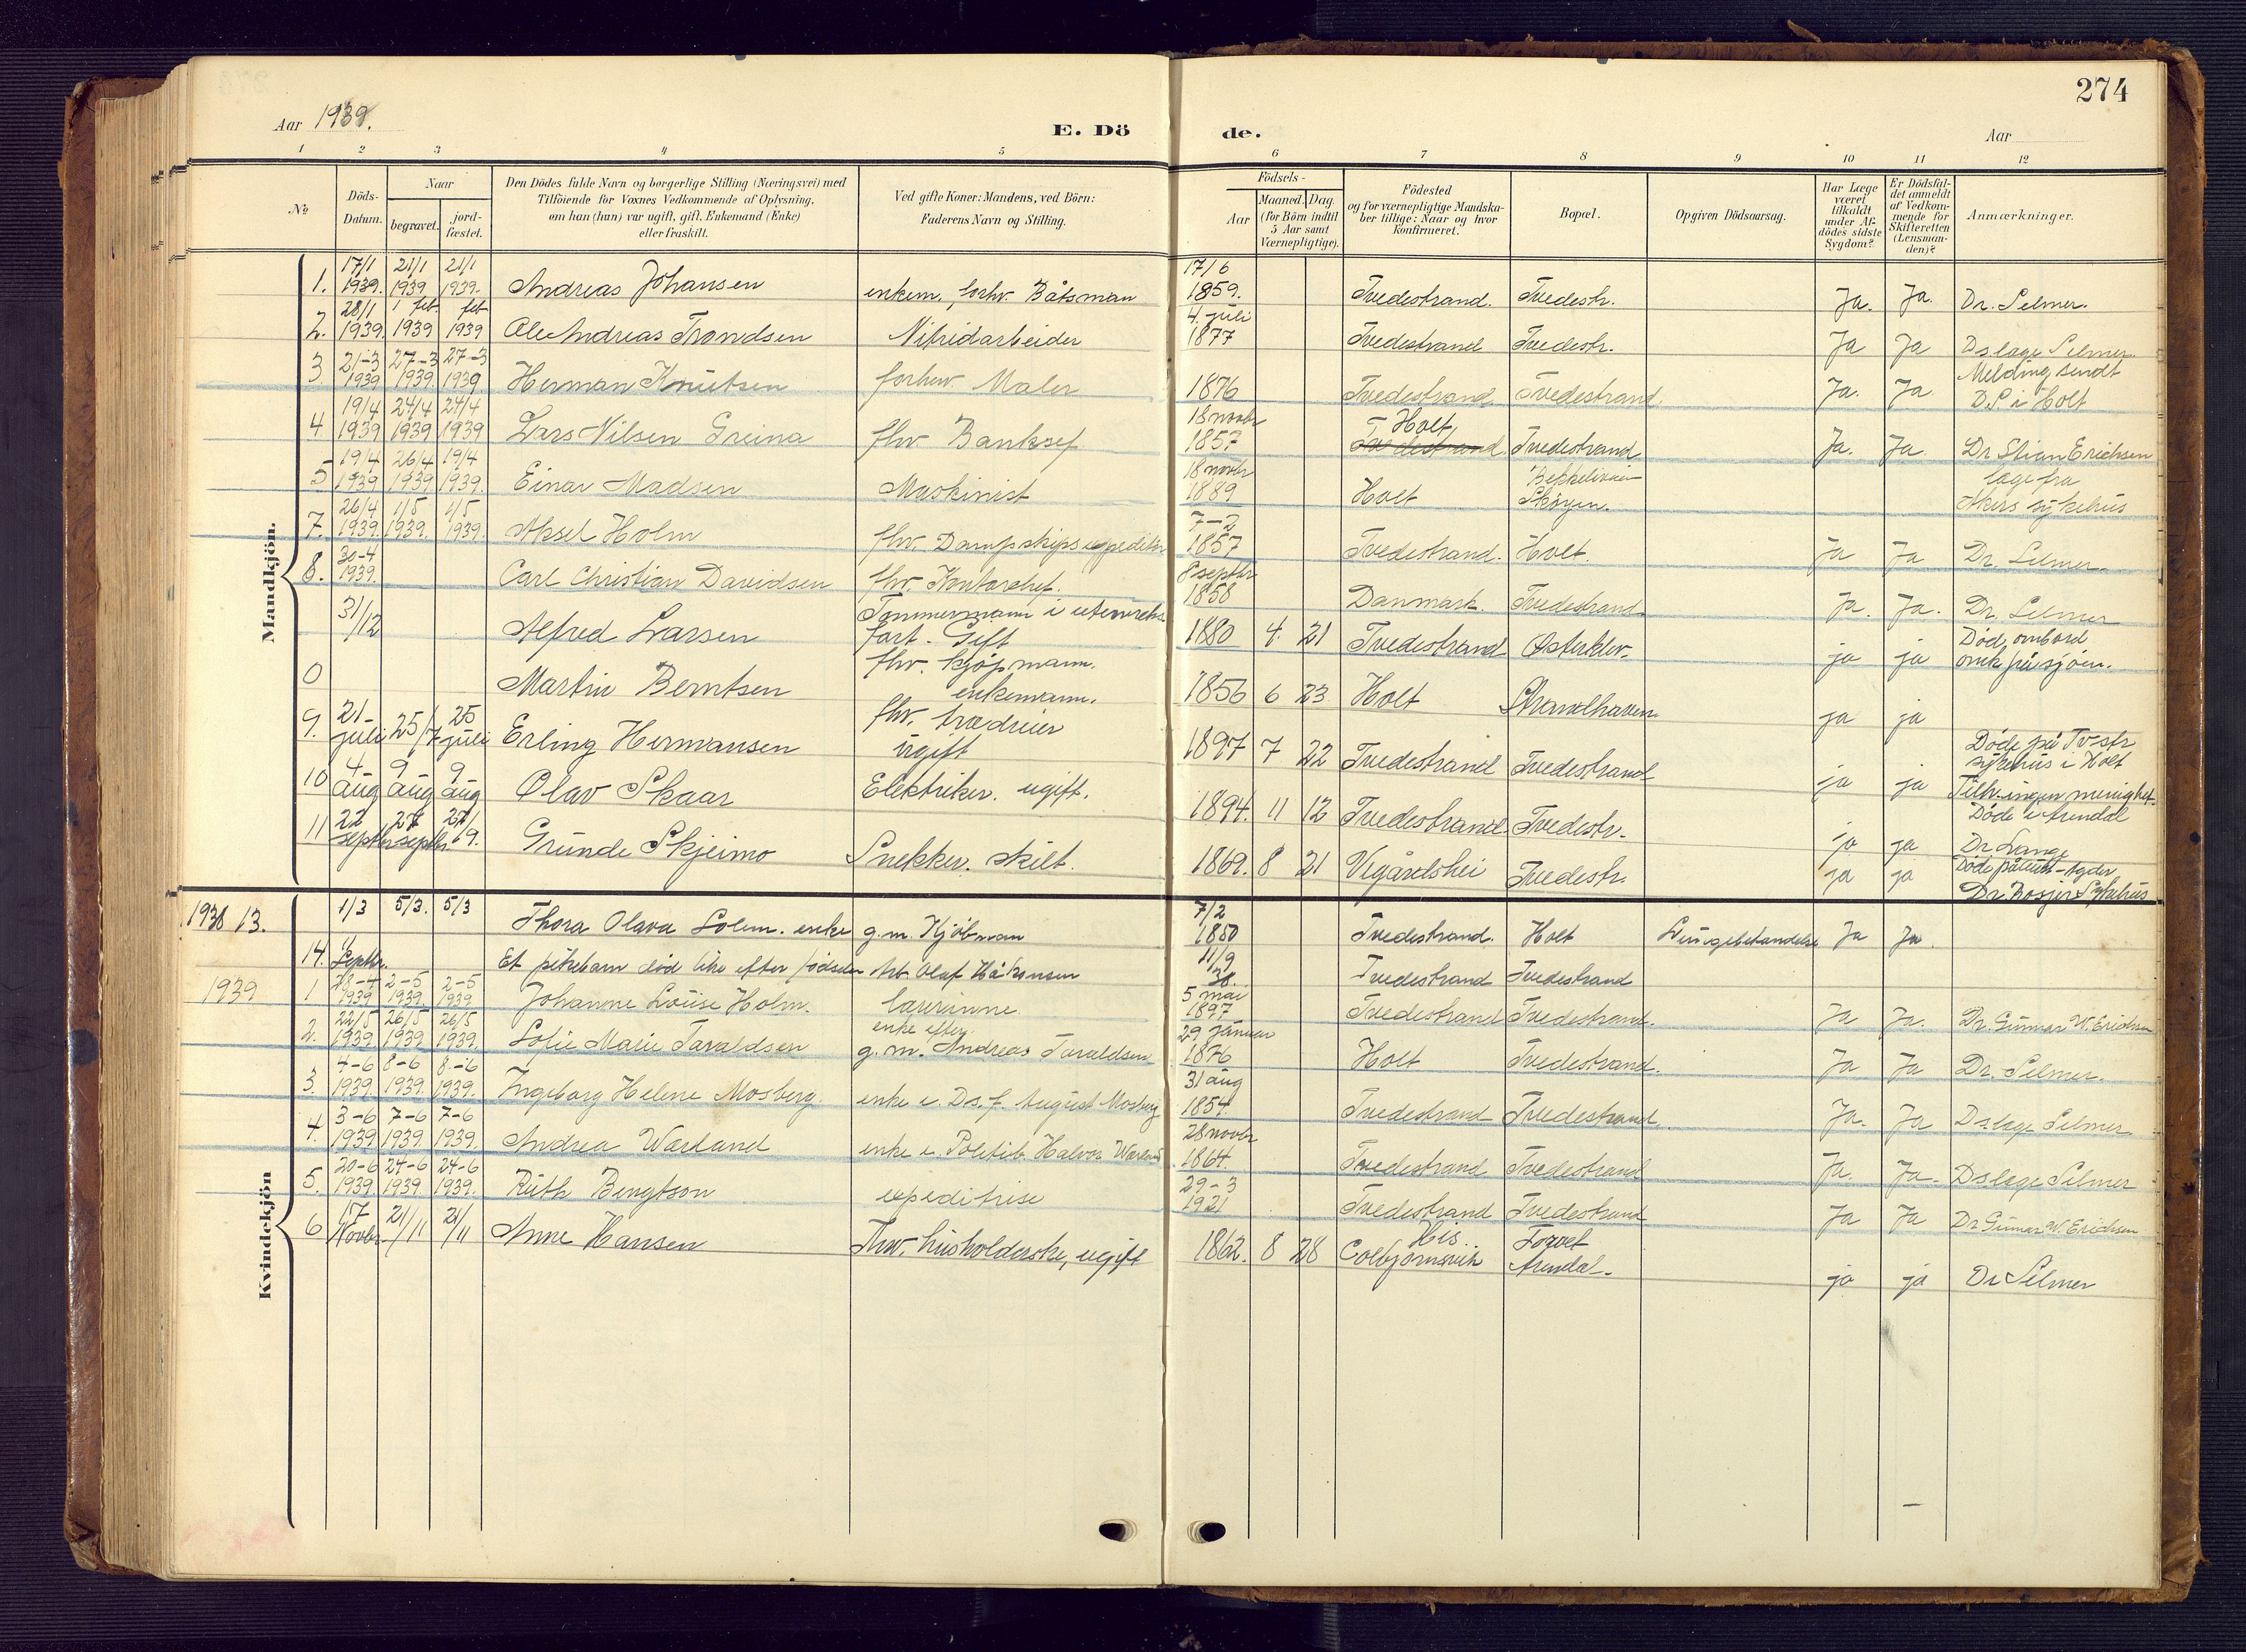 274
Aar 1939.
E. Dö de.
Aar
1 2 3 4 5 6 7 8 9 10 11 12
No
Döds-Datum.
Naar
begravet.
jord-fæstet.
Den Dödes fulde Navn og borgerlige Stilling (Næringsvei) med
Tilföiende for Voxnes Vedkommende af Oplysning,
om han (hun) var ugift, gift, Enkemand (Enke)
eller fraskilt.
Ved gifte Koner: Mandens, ved Börn:
Faderens Navn og Stilling.
Födsels-
Aar
Maaned. Dag.
(for Börn indtil
5 Aar samt
Værnepligtige).
Födested
og for værnepligtige Mandska-
ber tillige: Naar og hvor
konfirmeret.
Bopæl.
Opgiven Dödsaarsag.
Har Læge
været
tilkaldt
under Af-
dödes sidste
Sygdom?
Er Dödsfal-
det anmeldt
af Vedkom-
mende for
Skifteretten
(Lensman-
den)?
Anmærkninger.
Mandkjön.
1. 17/1 1939. 21/1 1939 21/1 1939. Andreas Johansen enkem., forhv. Båtsman 17/6 1859. Tvedestrand. Tvedestr. Ja. Ja. Dr. Selmer.
2. 28/1 1939. 1 feb. 1939 feb 1939 Ole Andreas Trondsen Nitridarbeider 4. juli 1877 Tvedestrand Tvedestr. Ja Ja Ds.læge Selmer.
3 21-3 1939 27-3 1939. 27-3 1939 Herman Knutsen forhv. Maler 1876 Tvedestrand Tvedestrand Ja. Ja. Melding sendt D.P. i Holt
4 19/4 1939 24/4 1939 24/4 1939 Lars Nilsen Greina fhv. Banksef 18 novbr 1857 Holt, Tvedestrand Tvedestrand Ja. Ja. Dr Stian Erichsen
5 19/4 1939 26/4 1939 19/4 1939. Einar Madsen Maskinist 18 novbr 1889 Holt Skøyen. læge fra Akers sykehus
7. 26/4 1939. 1/5 1939. 1/5 1939. Aksel Holm fhv. Dampskipsexpeditør 7-2 1857 Tvedestrand. Holt. Ja Ja Dr. Selmer.
8. 30-4 1939. Carl Christian Davidsen fhv. Kontorchef. 8 septbr 1858 Danmark. Tvedestrand Ja. Ja. Dr. Selmer
31/12 Alfred Larsen Tømmermann i utenriks fart. Gift 1880 4. 21 Tvedestrand Østerklev. ja ja Død ombord omk på sjøen.
0 Martin Berntsen fhv. kjøpmann. enkemann. 1856 6 23 Holt Strandhaven ja ja
9. 21- juli 25/7 25 juli Erling Hermansen fhv. trædreier ugift 1897 7 22 Tvedestrand Tvedestrand ja ja Døde på Tv-str sykehus i Holt
10 4- aug 9 aug 9 aug Olav Skaar Elektriker. ugift. 1894. 11 12 Tvedestrand Tvedestr. ja ja Tilh. ingen menighet. Døde i Arendal Dr Lange
11 22 septbr 27 septbr 27/9. Grunde Skjeimo Snekker. skilt. 1869. 8 21 Vegårdshei Tvedestr. ja ja Døde på Aust-Agder Sykehus
Kvindekjön
1938 13. 1/3 5/3. 5/3 Thora Olava Solem. enke g. m. Kjöbman 7/2 1850 Tvedestrand. Holt Ja Ja.
14. 11 Septbr. Et pikebarn död like efter födselen Arb. Olaf Håkonsen 11/9 38. Tvedestrand Tvedestrand
1939 1 28-4 1939 2-5 1939. 2-5 1939 Johanne Louise Holm. lærerinne. 5 mai 1897 Tvedestrand Tvedestrand. Ja Ja. Dr. Gunnar W. Erichsen
2. 22/5 1939. 26/5 1939 26/5 1939. Sofie Marie Taraldsen enke efter g. m. Andreas Taraldsen 29 januar 1876 Holt Tvedestrand. Ja Ja Dr. Selmer.
3. 4-6 1939 8-6 1939. 8-6 1939. Ingeborg Helene Mosberg. enke e. Ds.f. August Mosberg 31 aug 1854. Tvedestrand Tvedestrand Ja. Ja Ds.læge Selmer
4. 3-6 1939 7-6 1939 7-6 1939. Andrea Warland enke e. Politib. Halvor Warland 28 novbr 1864. Tvedestrand Tvedestrand Ja. Ja. Ds.læge Selmer
5. 20-6 1939 24-6 1939 24-6 1939. Ruth Bengtson expeditrise 29-3 1921 Tvedestrand Tvedestrand Ja Ja Dr Gunnar W. Erichsen
6 17 Novbr. 21/11 21/11 Anne Hansen Fhv. husholderske, ugift 1862. 8 28 His. Colbjørnsvik Torvet Arendal. ja ja Dr Selmer